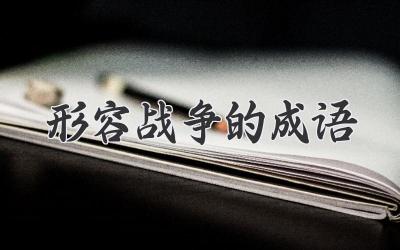 形容战争的成语